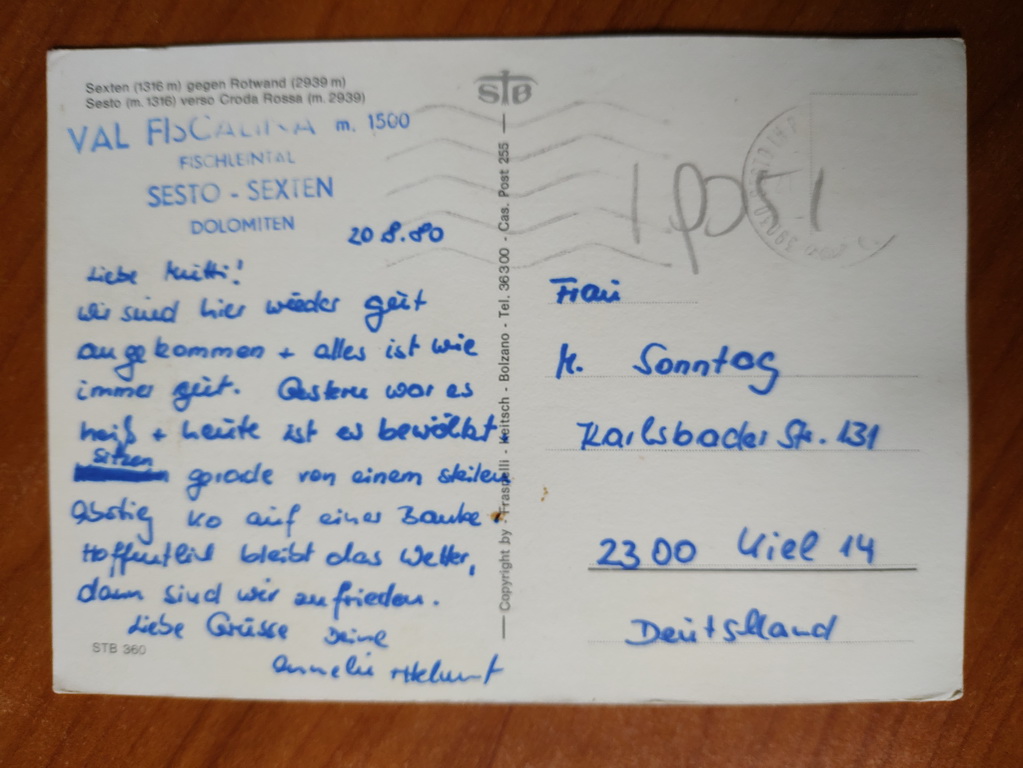 Sexten (1316 m) gegen Rotwand (2939 m)
Sesto (m. 1316) verso Croda Rossa (m. 2939)
VAL FISCALINA m. 1500
FISCHLEINTAL
SESTO - SEXTEN
DOLOMITEN
20.8.80
Liebe Mutti!
wir sind hier wieder gut
angekommen + alles ist wie
immer gut. Gestern war es
heiß + heute ist es bewölkt.
sitzen
gerade von einem steilen
Abstieg ko auf einer Banke.
Hoffentlich bleibt das Wetter,
dann sind wir zufrieden.
Liebe Grüsse Deine
Annelie + Helmut
STB 360
STB
Copyright by - Fraspelli - Keitsch - Bolzano - Tel. 36300 - Cas. Post 255
Frau
M. Sonntag
Karlsbader Str. 131
2300 Kiel 14
Deutschland